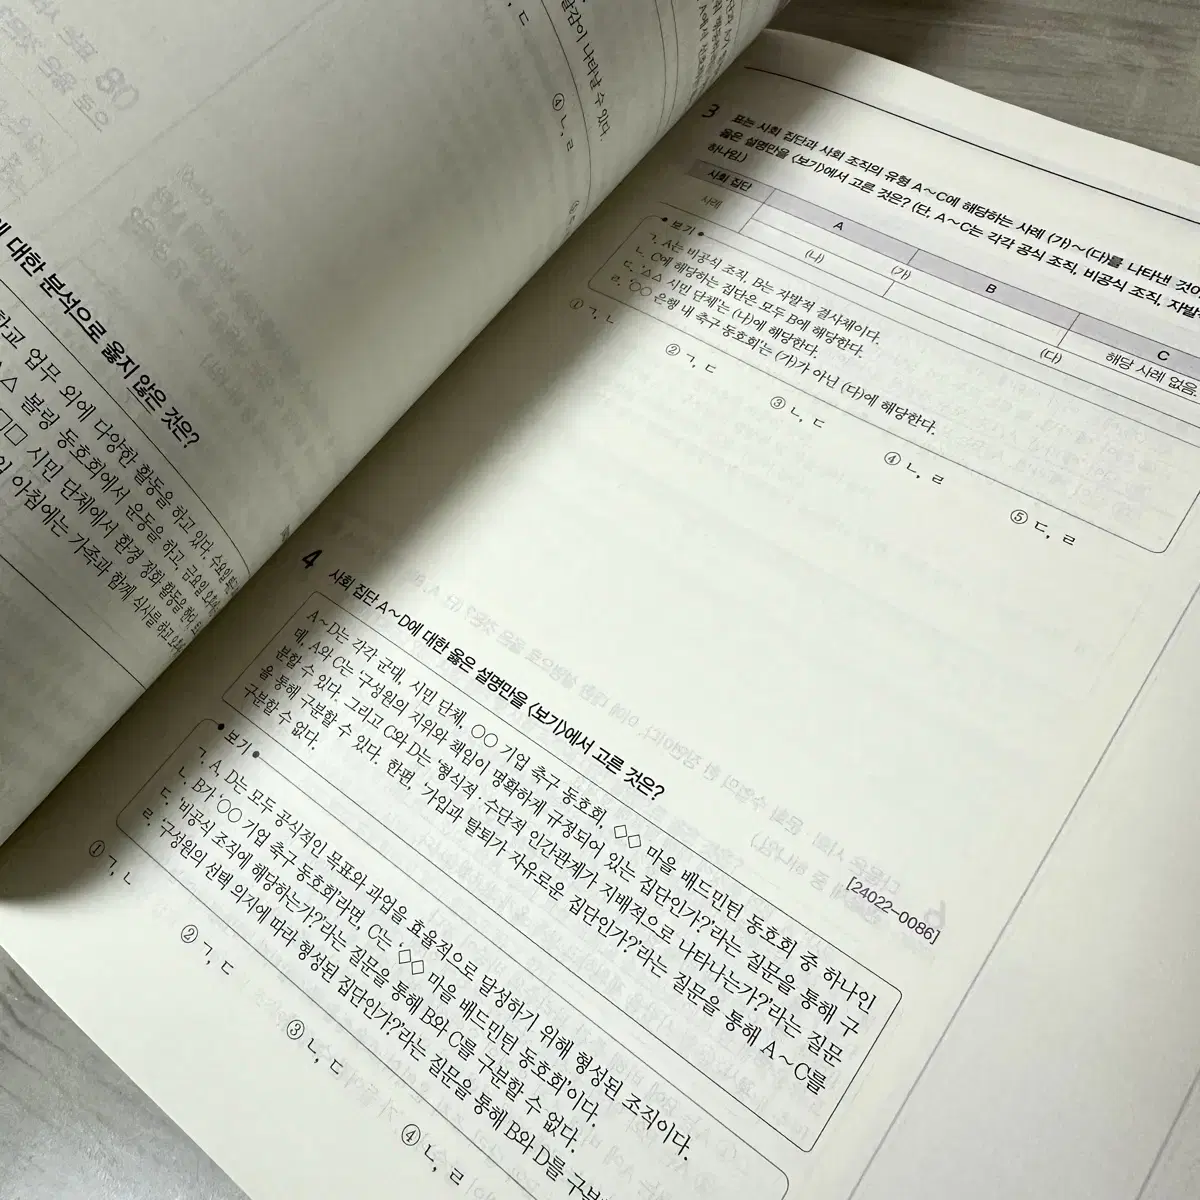 달감이 나타날 수 있다.
④ ㄴ, ㄹ
에 대한 분석으로 옳지 않은 것은?
학교 업무 외에 다양한 활동을 하고 있다. 수요일
△△ 볼링 동호회에서 운동을 하고, 금요일
□□ 시민 단체에서 환경 정화 활동을 한다.
아침에는 가족과 함께 식사를 하고,
3 표는 사회 집단과 사회 조직의 유형 A~C에 해당하는 사례 (가)~(다)를 나타낸 것이
옳은 설명만을 <보기>에서 고른 것은? (단, A~C는 각각 공식 조직, 비공식 조직, 자발적
하나임.)
사회 집단 A B C
사례 (나) (가) (다) 해당 사례 없음.
보기
ㄱ. A는 비공식 조직, B는 자발적 결사체이다.
ㄴ. C에 해당하는 집단은 모두 B에 해당한다.
ㄷ. ‘△△ 시민 단체’는 (나)에 해당한다.
ㄹ. ‘○○ 은행 내 축구 동호회’는 (가)가 아닌 (다)에 해당한다.
① ㄱ, ㄴ ② ㄱ, ㄷ ③ ㄴ, ㄷ ④ ㄴ, ㄹ ⑤ ㄷ, ㄹ
[24022-0086]
4 사회 집단 A~D에 대한 옳은 설명만을 <보기>에서 고른 것은?
A~D는 각각 군대, 시민 단체, ○○ 기업 축구 동호회, ◇◇ 마을 배드민턴 동호회 중 하나인
데, A와 C는 ‘구성원의 지위와 책임이 명확하게 규정되어 있는 집단인가?’라는 질문을 통해 구
분할 수 있다. 그리고 C와 D는 ‘형식적·수단적 인간관계가 지배적으로 나타나는가?’라는 질문
을 통해 구분할 수 있다. 한편, ‘가입과 탈퇴가 자유로운 집단인가?’라는 질문을 통해 A~C를
구분할 수 없다.
보기
ㄱ. A, D는 모두 공식적인 목표와 과업을 효율적으로 달성하기 위해 형성된 조직이다.
ㄴ. B가 ‘○○ 기업 축구 동호회’라면, C는 ‘◇◇ 마을 배드민턴 동호회’이다.
ㄷ. ‘비공식 조직에 해당하는가?’라는 질문을 통해 B와 C를 구분할 수 없다.
ㄹ. ‘구성원의 선택 의지에 따라 형성된 집단인가?’라는 질문을 통해 B와 D를 구분
① ㄱ, ㄴ ② ㄱ, ㄷ ③ ㄴ, ㄷ ④ ㄴ, ㄹ